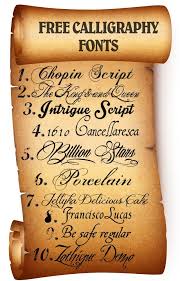 FREE CALLIGRAPHY
FONTS
1. Chopin Script
2. The King and Queen
3. Intrigue Script
4. 1610 Cancellaresca
5. Billion Stars
6. Porcelain
7. Jellyka Delicious Cake
8. Francisco Lucas
9. Be safe regular
10. Zothique Demo